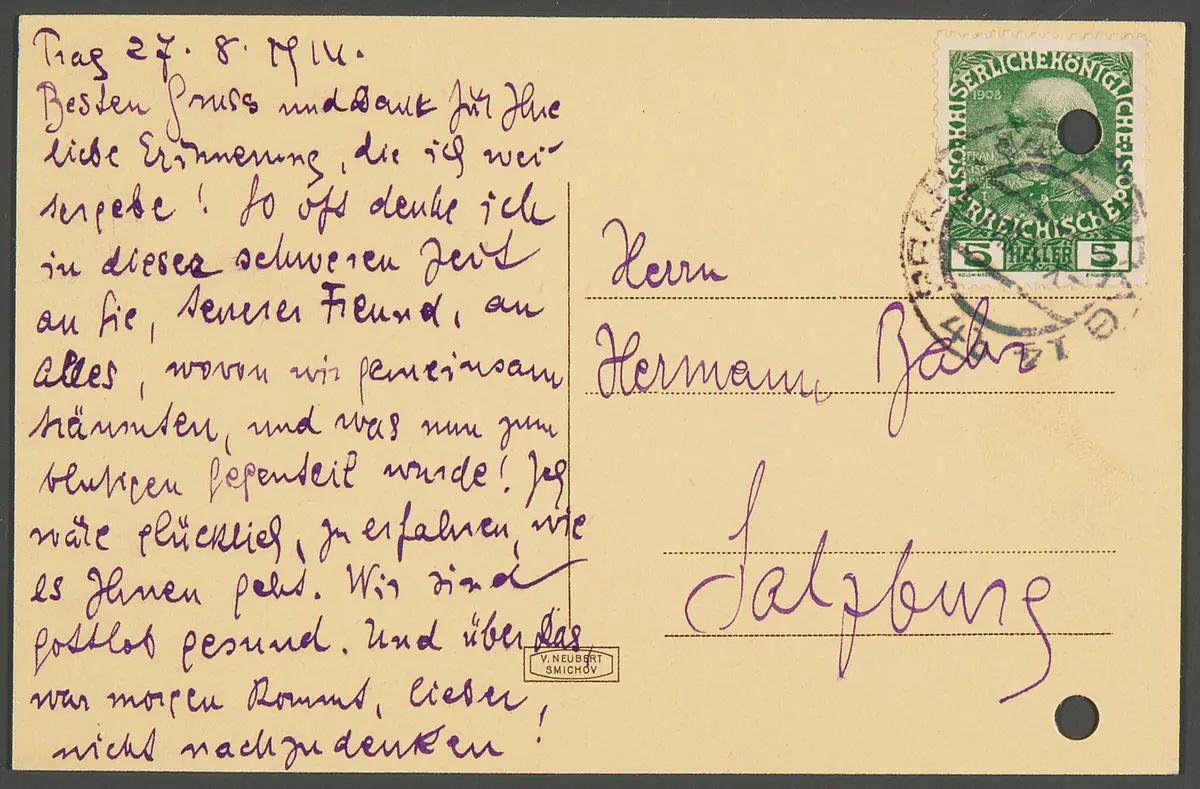 Prag 27. 8. 1914.
Besten Gruss und Dank für Ihre
liebe Erinnerung, die ich wei-
tergebe! So oft denke ich
in dieser schweren Zeit
an Sie, teurer Freund, an
alles, wovon wir gemeinsam
träumten, und was nun zum
blutigen Gegenteil wurde! Ich
wäre glücklich, zu erfahren, wie
es Ihnen geht. Wir sind
gottlob gesund. Und über das
was morgen kommt, lieber,
nicht nachzudenken!
V. NEUBERT
SMICHOV
KAISERLICHEKÖNIGLICHE
ÖSTERREICHISCHE POST
1908
5 HELLER 5
Herrn
Hermann Bahr
Salzburg